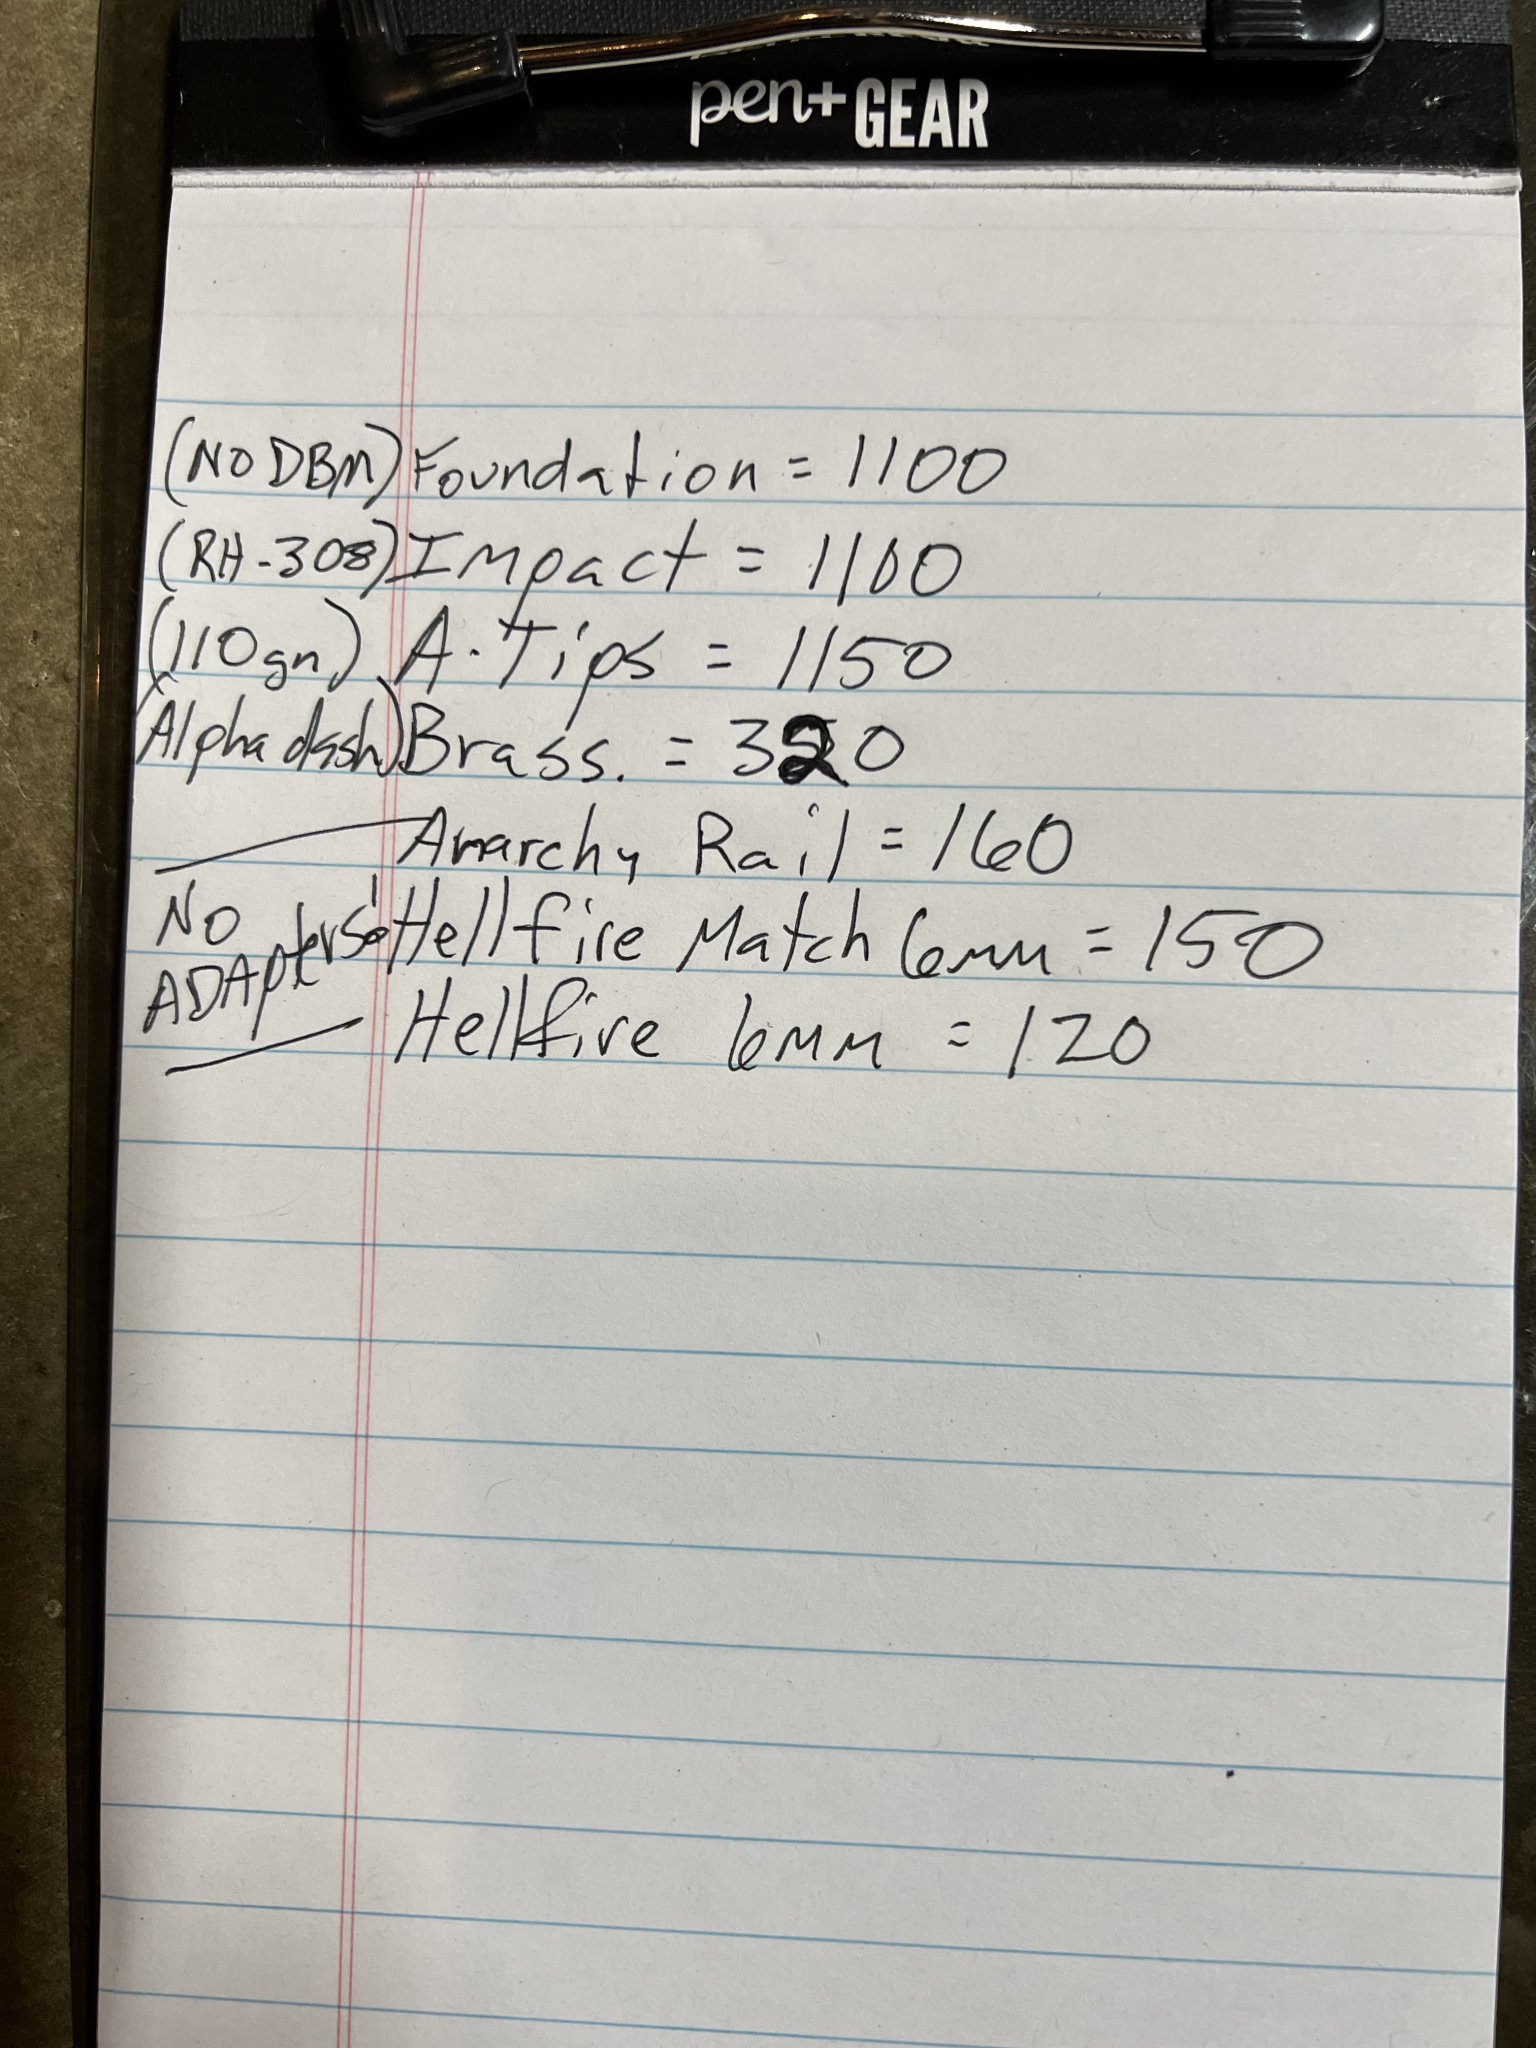 pen+GEAR
(NO DBM) Foundation = 1100
(RH-308) Impact = 1100
(110gn) A-Tips = 1150
(Alpha dash) Brass. = 320
Anarchy Rail = 160
NO ADApters! Hellfire Match 6mm = 150
Hellfire 6mm = 120